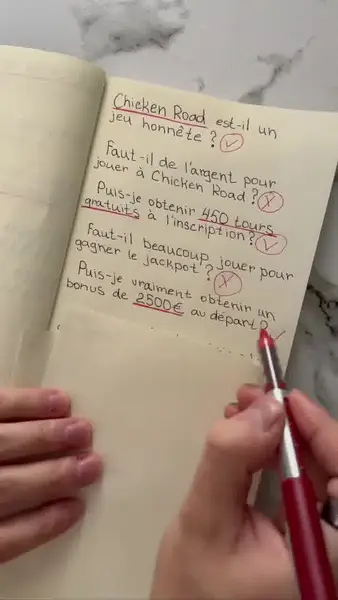 Chicken Road est-il un
jeu honnête ?
Faut-il de l'argent pour
jouer à Chicken Road ?
Puis-je obtenir 450 tours
gratuits à l'inscription ?
Faut-il beaucoup jouer pour
gagner le jackpot ?
Puis-je vraiment obtenir un
bonus de 2500€ au départ ?